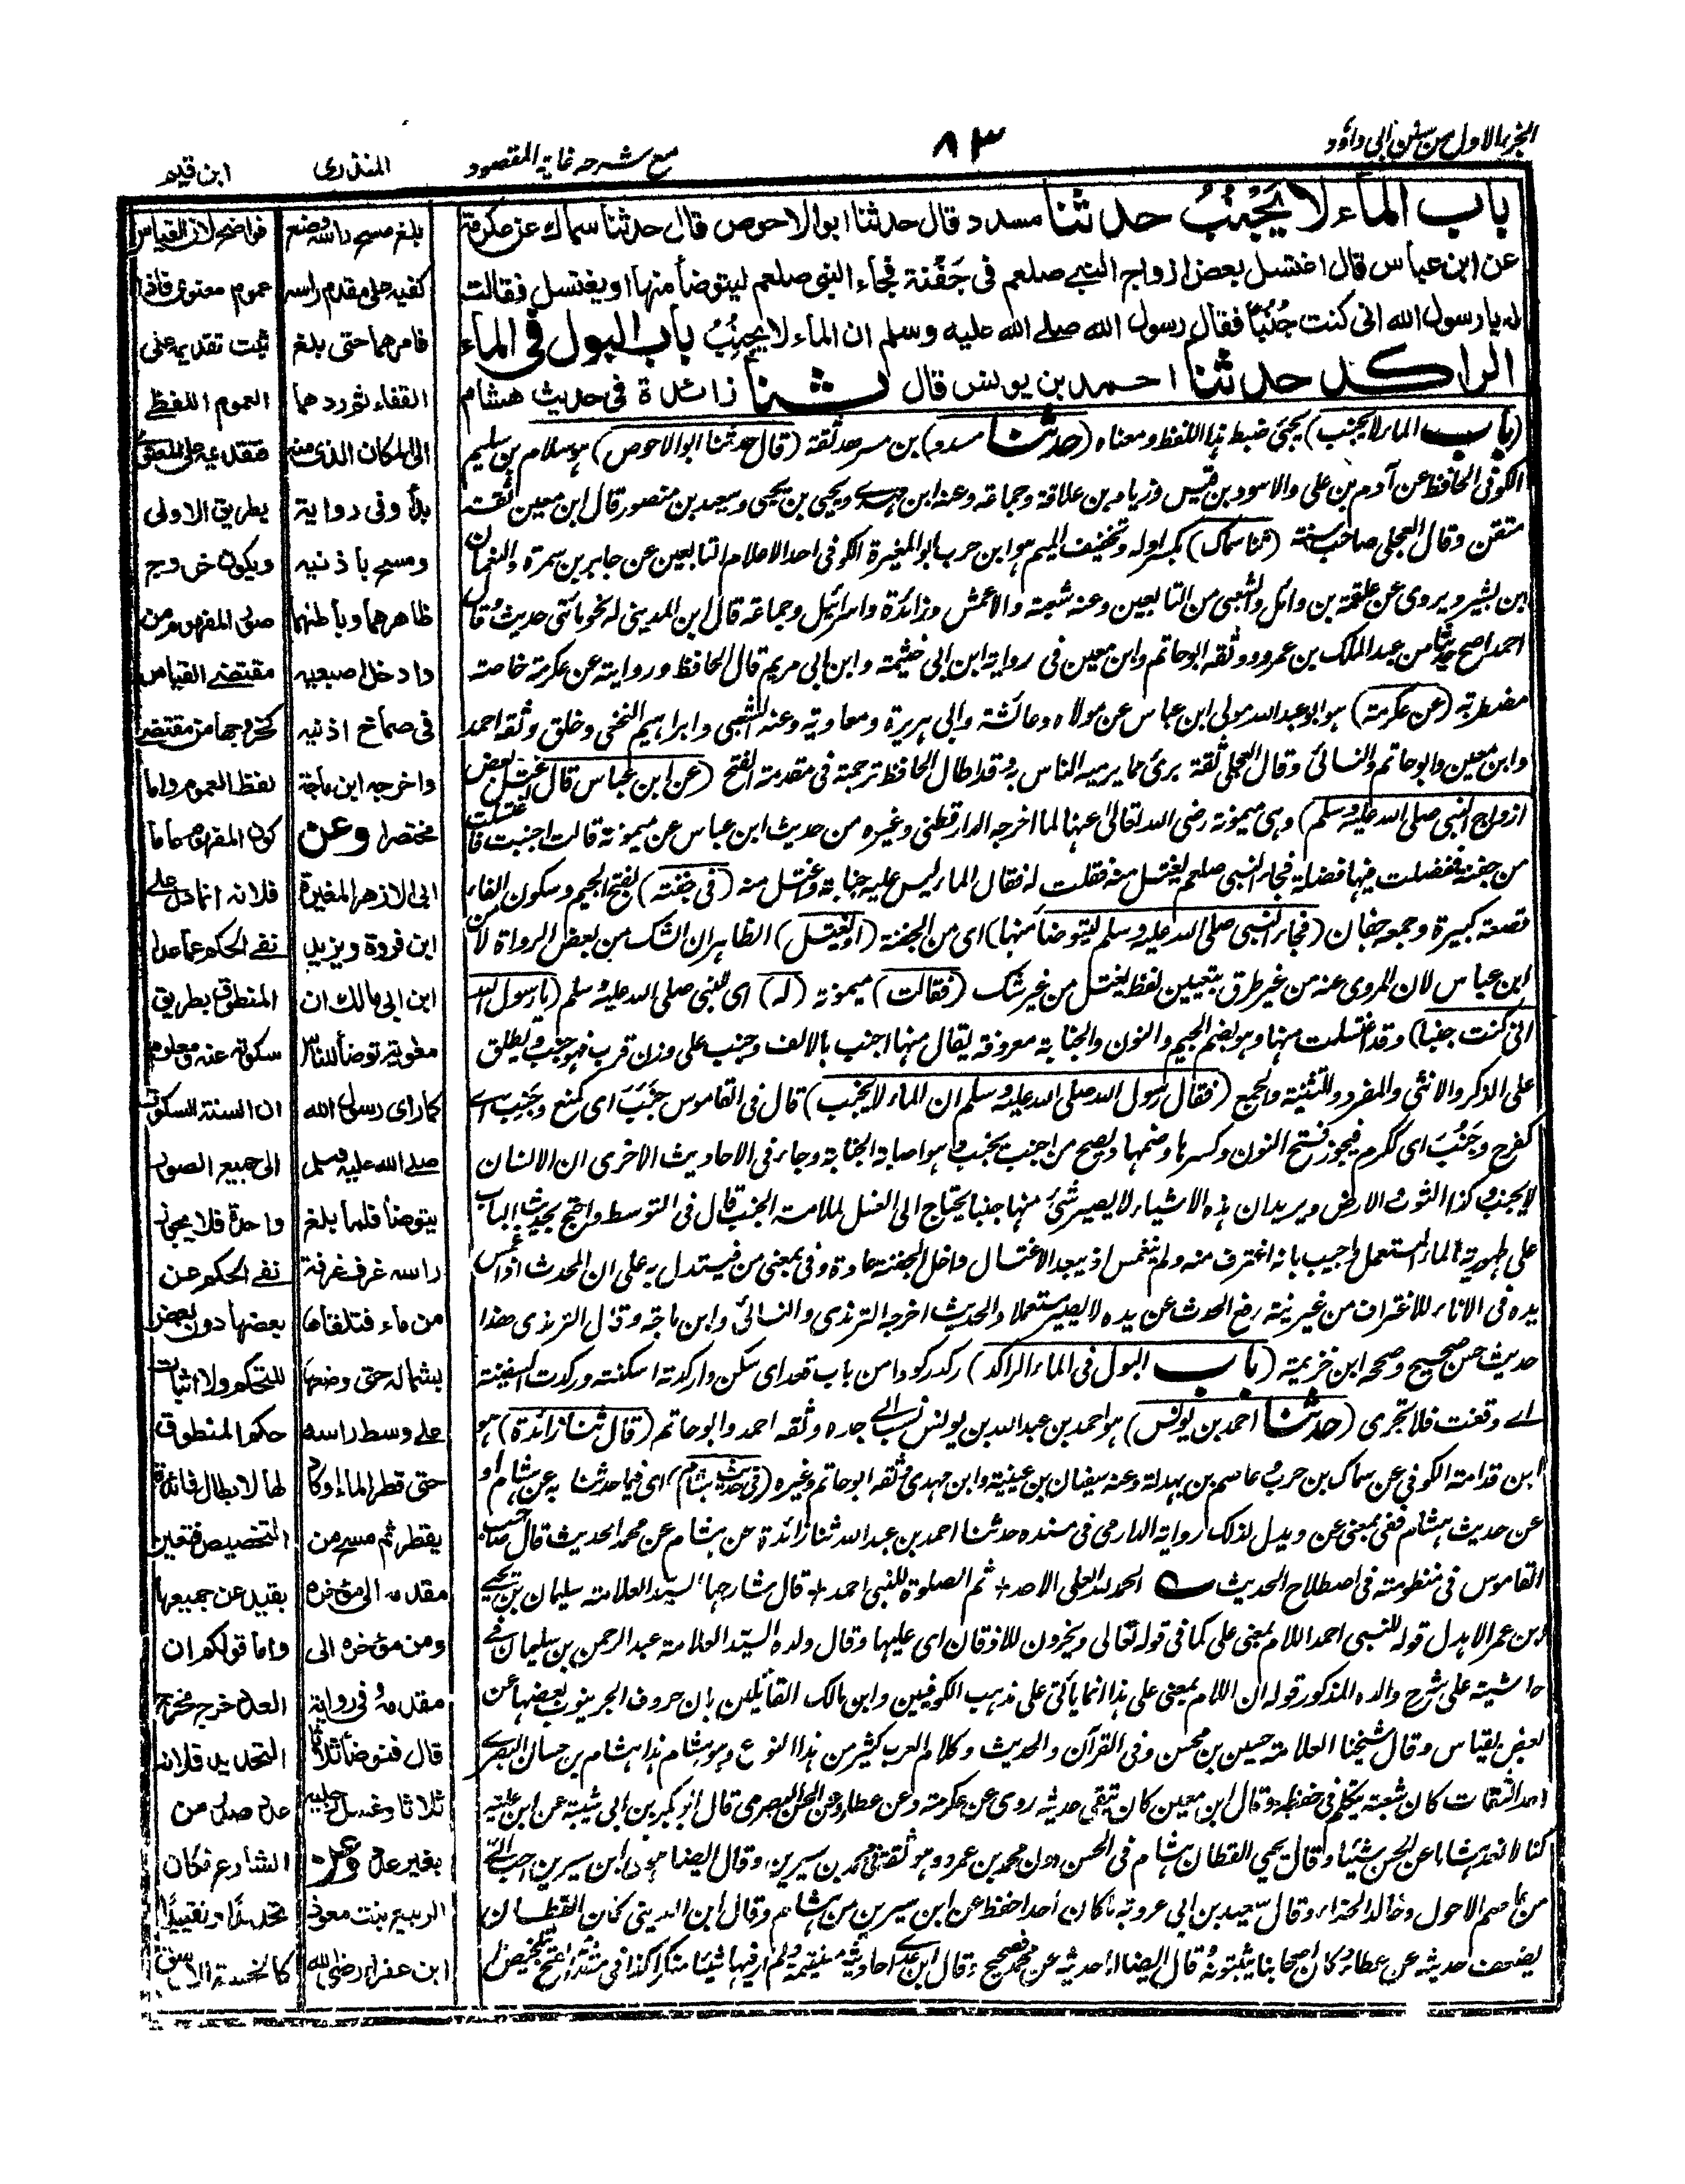 الجزء الاول من سنن ابی داؤد
٨٣
مع شرحه غاية المقصود
المنذری
ابن قیم
باب الماء لا يَجْنُبُ حدثنا مسدد قال حدثنا ابو الاحوص قال حدثنا سماك عن عكرمة
عن ابن عباس قال اغتسل بعض ازواج النبي صلعم فی جَفْنة فجاء النبی صلعم ليتوضأ منها او يغتسل فقالت
له يا رسول الله انی كنت جُنُبًا فقال رسول الله صلے الله عليه وسلم ان الماء لا يجنب باب البول فی الماء
الراكد حدثنا احمد بن يونس قال ثنا زائدة فی حديث هشام
(باب الماء لا يجنب) يجئ ضبط هذا اللفظ ومعناه (حدثنا مسدد) بن مسرهد ثقة (قال حدثنا ابو الاحوص) هو سلام بن سليم
الكوفی الحافظ عن آدم بن علی والاسود بن قيس وزياد بن علاقة وجماعة وعنه ابن مهدے ويحيی بن يحيی وسعيد بن منصور قال ابن معين ثقة
متقن وقال العجلی صاحب سنة (ثنا سماك) بكسر اوله وتخفيف الميم هو ابن حرب ابو المغيرة الكوفی احد الاعلام التابعين عن جابر بن سمرة والنعمان
ابن بشير ويروی عن علقمة بن وائل والشعبی من التابعين وعنه شعبة والاعمش وزائدة واسرائيل وجماعة قال ابن المدينی له نحو مائتی حديث وقال
احمد اصح حديثا من عبد الملك بن عمير ووثقه ابو حاتم وابن معين فی رواية ابن ابی خيثمة وابن ابی مريم قال الحافظ وروايته عن عكرمة خاصة
مضطربة (عن عكرمة) هو ابو عبد الله مولی ابن عباس عن مولاه وعائشة وابی هريرة ومعاوية وعنه الشعبی وابراهيم النخعی وخلق وثقه احمد
وابن معين وابو حاتم والنسائی وقال العجلی ثقة برئ مما يرميه الناس به وقد اطال الحافظ ترجمة فی مقدمة الفتح (عن ابن عباس قال اغتسل بعض
ازواج النبی صلی الله عليه وسلم) وهی ميمونة رضی الله تعالی عنها لما اخرجه الدارقطنی وغيره من حديث ابن عباس عن ميمونة قالت اجنبت فاغتسلت
من جفنة ففضلت فيها فضلة فجاء النبی صلعم يغتسل منه فقلت له فقال الماء ليس عليه جنابة واغتسل منه (فی جفنة) بفتح الجيم وسكون الفاء
قصعة كبيرة وجمعه جفان (فجاء النبی صلی الله عليه وسلم ليتوضأ منها) ای من الجفنة (او يغتسل) الظاهر ان الشك من بعض الرواة لا من
ابن عباس لان المروی عنه من غير طرق بتعيين لفظ يغتسل من غير شك (فقالت) ميمونة (له) ای للنبی صلی الله عليه وسلم (يا رسول الله
انی كنت جنبا) وقد اغتسلت منها وهو بضم الجيم والنون والجنابة معروفة يقال منها اجنب بالالف وجنب علی وزن قرب فهو جنب ويطلق
علی الذكر والانثی والمفرد والتثنية والجمع (فقال رسول الله صلی الله عليه وسلم ان الماء لا يجنب) قال فی القاموس جَنَبَ ای كمنع وجَنِبَ اے
كفرح وجَنُبَ ای ككرم فيجوز فتح النون وكسرها وضمها ويصح من اجنب يجنب وهو اصابة الجنابة وجاء فی الاحاديث الاخری ان الانسان
لا يجنب وكذا الثوب والارض ويريد ان هذه الاشياء لا يصير شئ منها جنبا يحتاج الی الغسل لملامسة الجنب قال فی التوسط واحتج بحديث الباب
علی طهورية الماء المستعمل واجيب بانه اغترف منه ولم ينغمس اذ يبعد الاغتسال داخل الجفنة عادة وفی بمعنی من فيستدل به علی ان المحدث اذا غمس
يده فی الاناء للاغتراف من غير نية رفع الحدث عن يده لا يصير مستعملا والحديث اخرجه الترمذی والنسائی وابن ماجة وقال الترمذی هذا
حديث حسن صحيح وصححه ابن خزيمة (باب البول فی الماء الراكد) ركد ركودا من باب قعد ای سكن واركدته اسكنته وركدت السفينة
اے وقفت فلا تجری (حدثنا احمد بن يونس) هو احمد بن عبد الله بن يونس نسب الے جده وثقه احمد وابو حاتم (قال ثنا زائدة) هو
ابن قدامة الكوفی عن سماك بن حرب وعاصم بن بهدلة وعنه سفيان بن عيينة وابن مهدی وثقه ابو حاتم وغيره (فی حديث هشام) ای فيما حدثنا به عن هشام او
عن حديث هشام ففی بمعنی عن ويدل لذلك رواية الدارمی فی مسنده حدثنا احمد بن عبد الله ثنا زائدة عن هشام عن محمد الحديث قال صاحب
القاموس فی منظومته فی اصطلاح الحديث الحمد لله العلی الاحد + ثم الصلوة للنبی احمد + قال شارحها السيد العلامة سليمان بن يحيے
ابن عمر الاهدل قوله للنبی احمد اللام بمعنی علی كما فی قوله تعالی ويخرون للاذقان ای عليها وقال ولده السيد العلامة عبد الرحمن بن سليمان فے
حاشيته علی شرح والده المذكور قوله ان اللام بمعنی علی هذا انما يأتی علی مذهب الكوفيين وابن مالك القائلين بان حروف الجر ينوب بعضها عن
بعض بقياس وقال شيخنا العلامة حسين بن محسن وفی القرآن والحديث وكلام العرب كثير من هذا النوع وهو هشام هذا هشام بن حسان البصرے
احد الثقات كان شعبة يتكلم فی حفظه وقال ابن معين كان يتقی حديثه روی عن عكرمة وعن عطاء وعن الحسن البصری قال ابو بكر بن ابی شيبة عن ابن علية
كنا لا نعد هشاما عن الحسن شيئا وقال يحيی القطان هشام فی الحسن دون محمد بن عمرو وهو ثقة فی محمد بن سيرين وقال ايضا هو فی ابن سيرين احب الے
من عاصم الاحول وخالد الحذاء وقال سعيد بن ابی عروبة ما كان احدا حفظ عن ابن سيرين من هشام وقال ابن المدينی كان القطان
يضعف حديثه عن عطاء وكان اصحابنا يثبتونه قال ايضا اما حديثه عن محمد فصحيح وقال ابن عدے احاديثه مستقيمة ولم ار فيها شيئا منكرا كذا فی مقدمة الفتح بتلخيص
بلغ مسح راسه وضع
كفيه علی مقدم راسه
فامرهما حتی بلغ
القفاء ثم ردهما
الی المكان الذی منه
بدأ وفی رواية
ومسح باذنيه
ظاهرهما وباطنهما
وادخل اصبعيه
فی صماخ اذنيه
واخرجه ابن ماجة
مختصرا وعن
ابی الازهر المغيرة
ابن فروة ويزيد
ابن ابی مالك ان
معوية توضأ للناس
كما رای رسول الله
صلے الله عليه وسلم
يتوضأ فلما بلغ
راسه غرف غرفة
من ماء فتلقاها
بشماله حتی وضعها
علے وسط راسه
حتی قطر الماء او كاد
يقطر ثم مسح من
مقدمه الی مؤخره
ومن مؤخره الی
مقدمه وفی رواية
قال فتوضأ ثلاثا
ثلاثا وغسل رجليه
بغير عدد وعن
الربيع بنت معوذ
ابن عفراء رضی الله
فواضح لان القياس
عموم معنوی فاذا
ثبت تقديمه علی
العموم اللفظے
فتقديمه علی المفهوم
بطريق الاولی
ويكون خروج
صور المفهوم من
مقتضے القياس
كخروجها من مقتضے
لفظ العموم واما
كون المفهوم عاما
فلانه انما دل علے
نفے الحكم عما عدا
المنطوق بطريق
سكوته عنه ومعلوم
ان نسبة السكوت
الی جميع الصور
واحدة فلا يجوز
نفے الحكم عن
بعضها دون بعض
للتحكم ولا اثبات
حكم المنطوق
لها لابطال فائدة
التخصيص فتعين
بقيد عن جميعها
واما قولكم ان
العدد خرج مخرج
التحديد فلانه
عدد صدر من
الشارع فكان
تحديدا وتقييدا
كالخمسة الاوسق